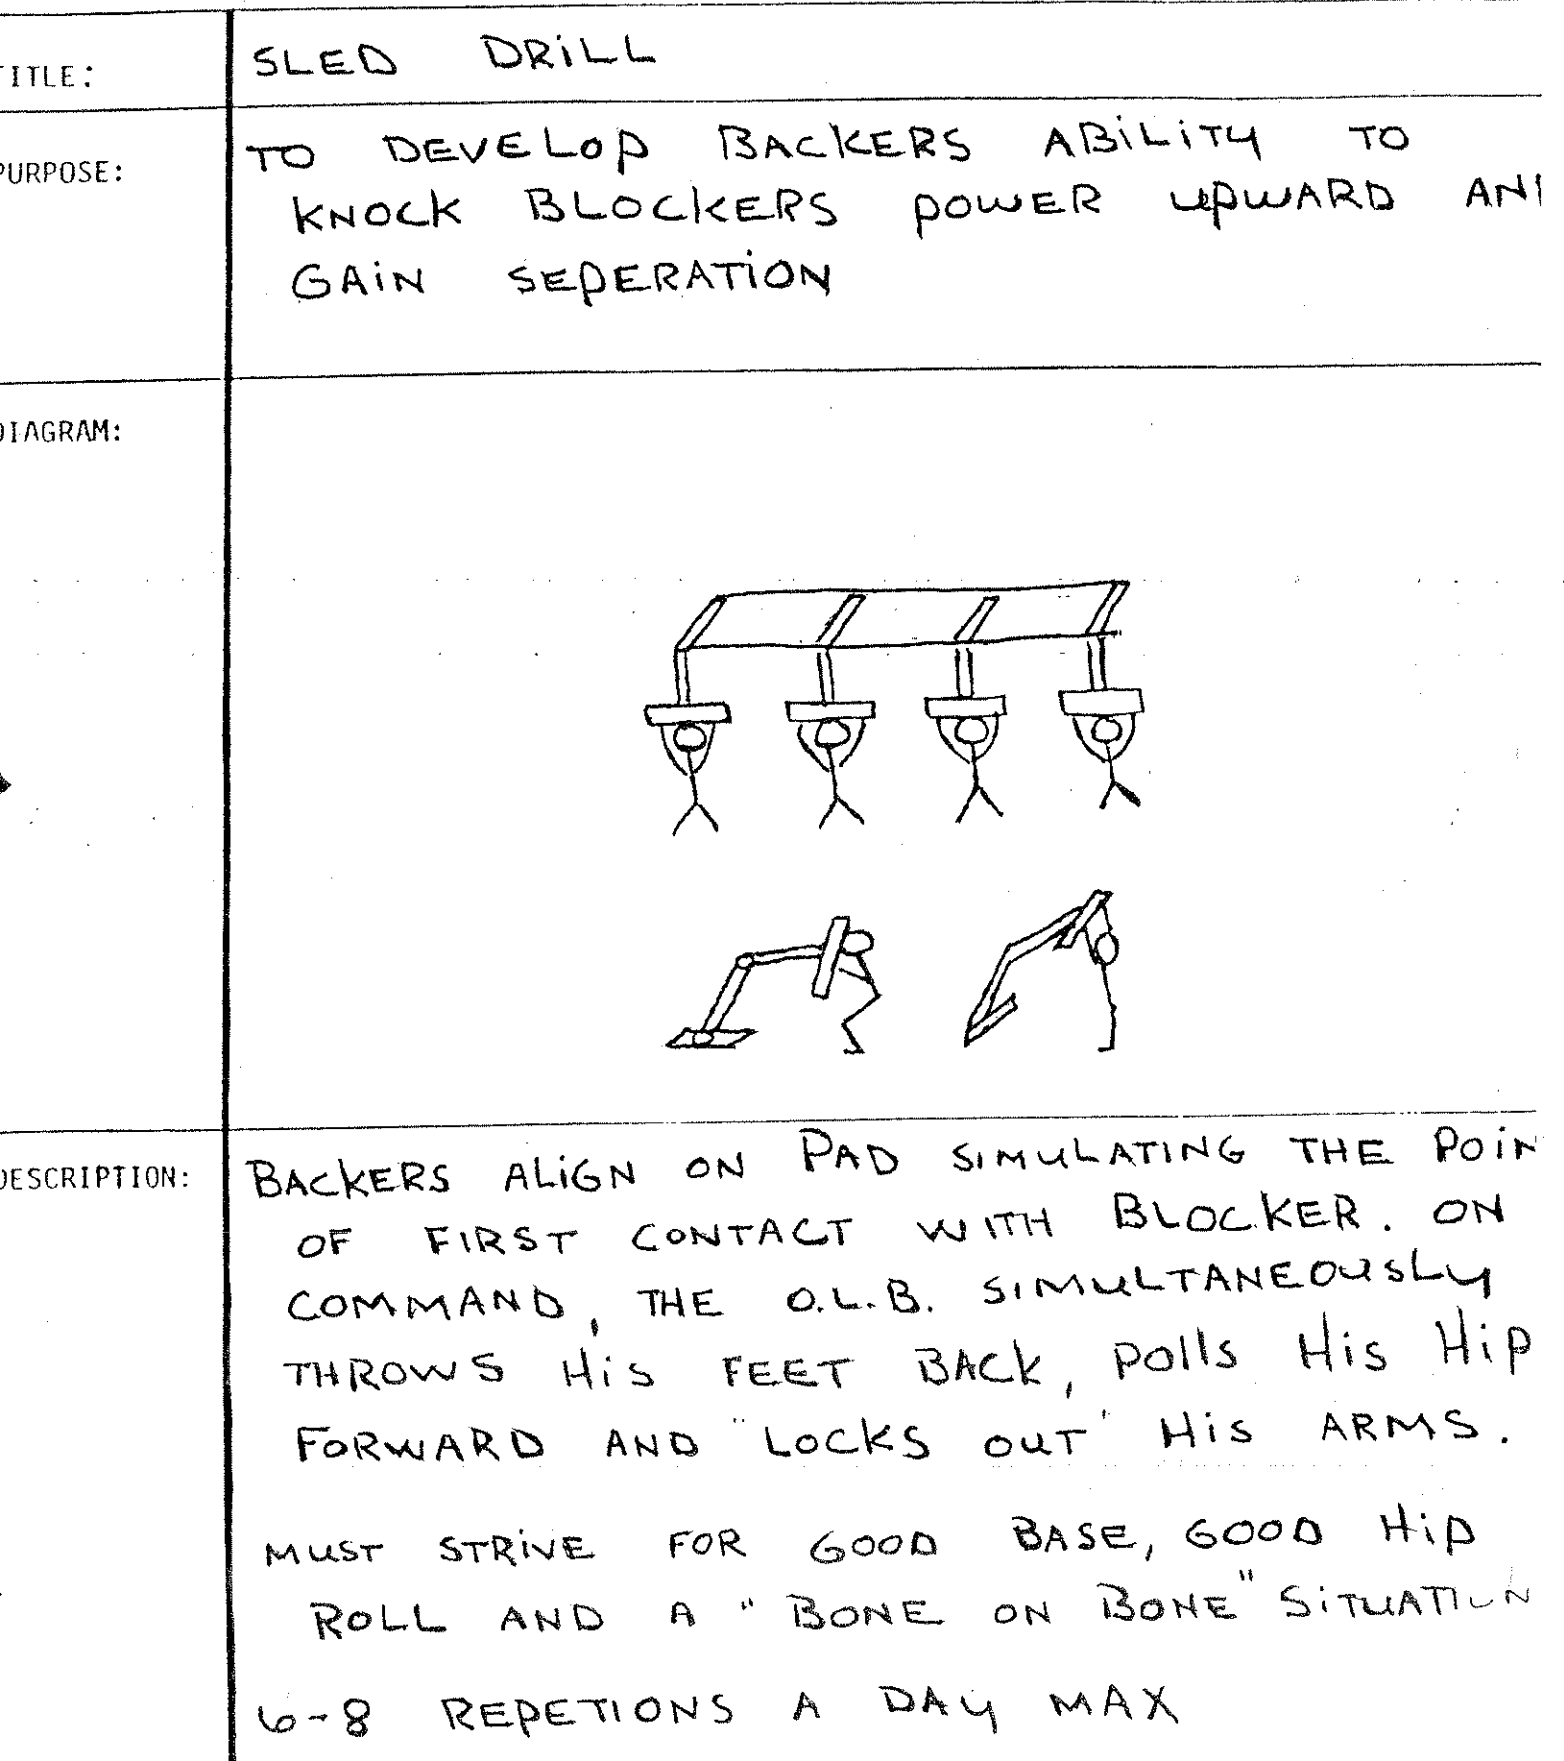 TITLE: SLED DRILL
PURPOSE: TO DEVELOP BACKERS ABILITY TO
KNOCK BLOCKERS POWER UPWARD AN
GAIN SEPERATION
DIAGRAM:
DESCRIPTION: BACKERS ALIGN ON PAD SIMULATING THE POIN
OF FIRST CONTACT WITH BLOCKER. ON
COMMAND, THE O.L.B. SIMULTANEOUSLY
THROWS HIS FEET BACK, POLLS HIS HIP
FORWARD AND "LOCKS OUT" HIS ARMS.
MUST STRIVE FOR GOOD BASE, GOOD HIP
ROLL AND A "BONE ON BONE" SITUATION
6-8 REPETIONS A DAY MAX